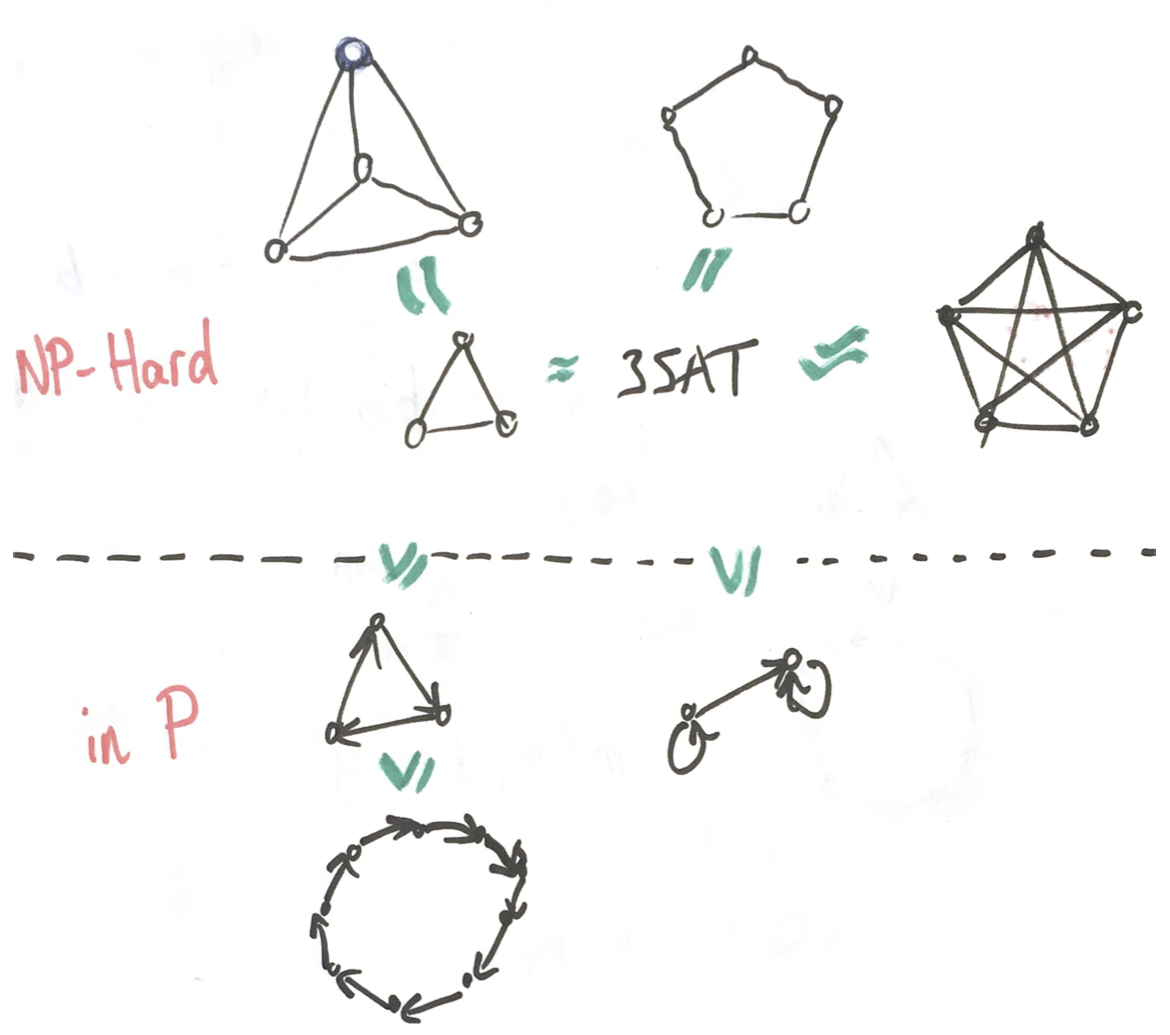 NP-Hard
3SAT
in P